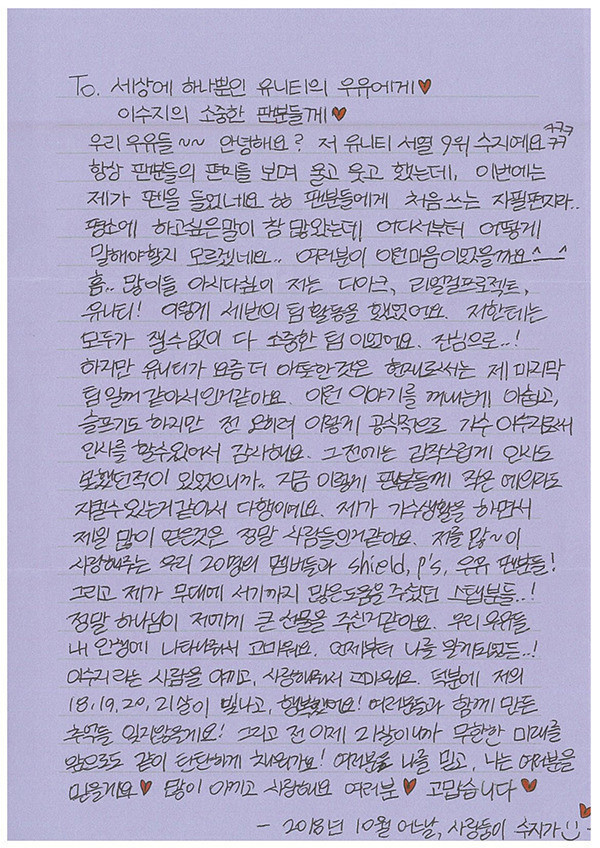 To. 세상에 하나뿐인 유니티의 우유에게♥
이수지의 소중한 팬분들께♥
우리 우유들~~ 안녕해요? 저 유니티 서열 9위 수지예요 ㅋㅋㅋㅋㅋ
항상 팬분들의 편지를 보며 울고 웃고 했는데, 이번에는
제가 펜을 들었네요 ㅎㅎ 팬분들에게 처음쓰는 자필편지라..
평소에 하고싶은말이 참 많았는데 어디서부터 어떻게
말해야할지 모르겠네요.. 여러분이 이런마음이었을까요^__^
흠.. 많이들 아시다싶이 저는 디아크, 리얼걸프로젝트,
유니티! 이렇게 세번의 팀활동을 했었어요. 저한테는
모두가 잴수없이 다 소중한 팀이었어요. 진심으로..!
하지만 유니티가 요즘 더 애틋한것은 현재로서는 제 마지막
팀일꺼 같아서인거같아요. 이런 이야기를 꺼내는게 아쉽고,
슬프기도 하지만 전 오히려 이렇게 공식적으로 가수 이수지로써
인사를 할수있어서 감사해요. 그전에는 갑작스럽게 인사도
못했던적이 있었으니까.. 지금 이렇게 팬분들께 작은 예의라도
지킬수있는거같아서 다행이에요. 제가 가수생활을 하면서
제일 많이 얻은것은 정말 사람들인거같아요. 저를 많~이
사랑해주는 우리 20명의 멤버들과 shield, p's, 우유 팬분들!
그리고 제가 무대에 서기까지 많은도움을 주셨던 스탭분들..!
정말 하나님이 저에게 큰 선물을 주신거같아요. 우리 우유들
내 인생에 나타나줘서 고마워요. 언제부터 나를 알게되었든..!
이수지라는 사람을 아끼고, 사랑해줘서 고마워요. 덕분에 저의
18, 19, 20, 21살이 빛나고, 행복했어요! 여러분들과 함께 만든
추억들 잊지않을게요! 그리고 전 이제 21살이니까 무한한 미래를
앞으로도 같이 탄탄하게 채워가요! 여러분도 나를 믿고, 나는 여러분을
믿을게요♥ 많이 아끼고 사랑해요 여러분♥ 고맙습니다♥
- 2018년 10월 어느날, 사랑둥이 수지가☺♥ -